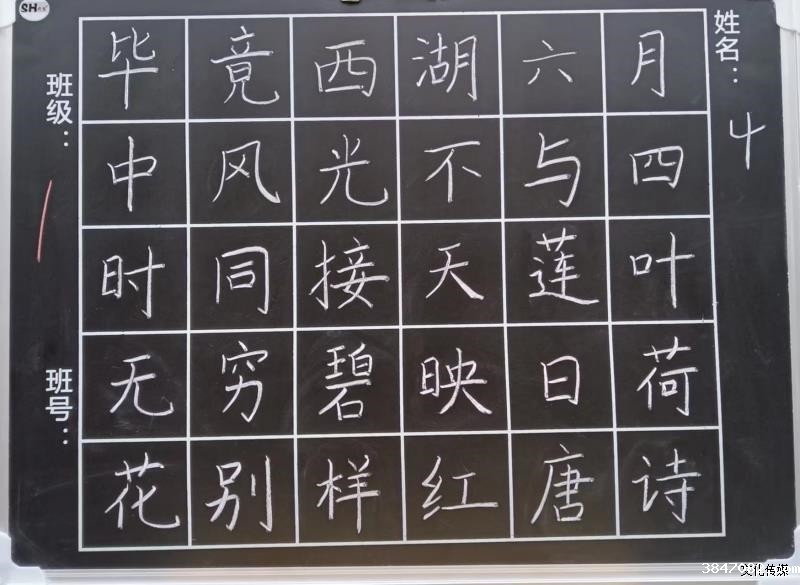 SH
姓名：
班级：
毕竟西湖六月
4
中风光不与四
时同接天莲叶
班号：
无穷碧映日荷
花别样红唐诗
文化传媒